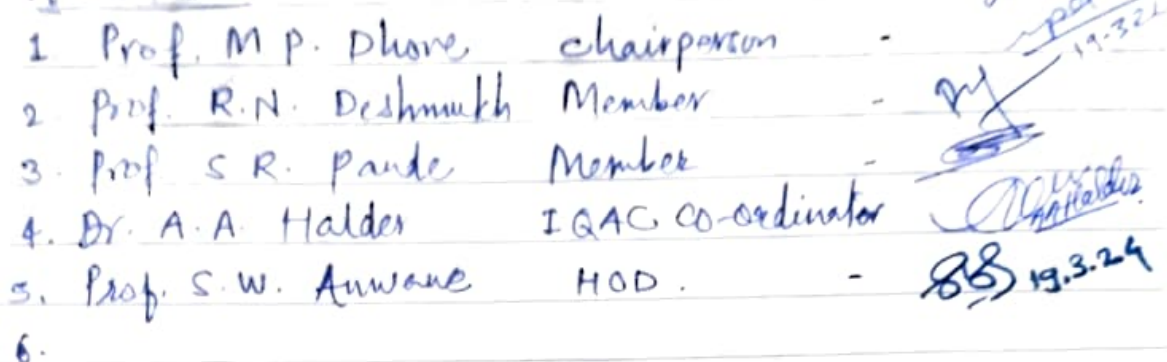 1 Prof. M P. Dhore chairperson - 19.3.24
2 Prof. R.N. Deshmukh Member -
3. Prof S R. Pande Member -
4. Dr. A. A. Halder IQAC Co-ordinator AAHalder
5. Prof. S. W. Anwane HOD. - 19.3.24
6.